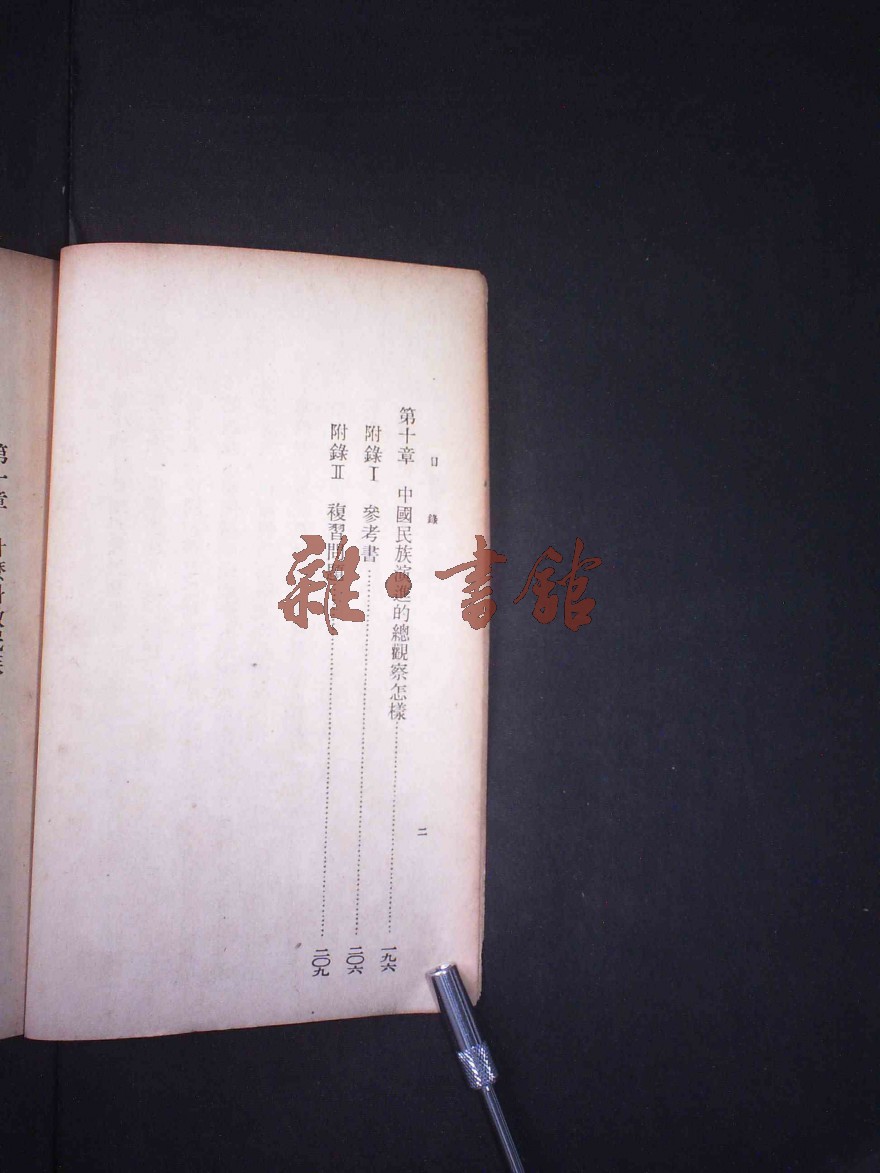 目錄
二
第十章 中國民族演進的總觀察怎樣……一九六
附錄Ⅰ 參考書……二〇六
附錄Ⅱ 複習問題……二〇九
第一章 什麼叫做民族
雜·書館